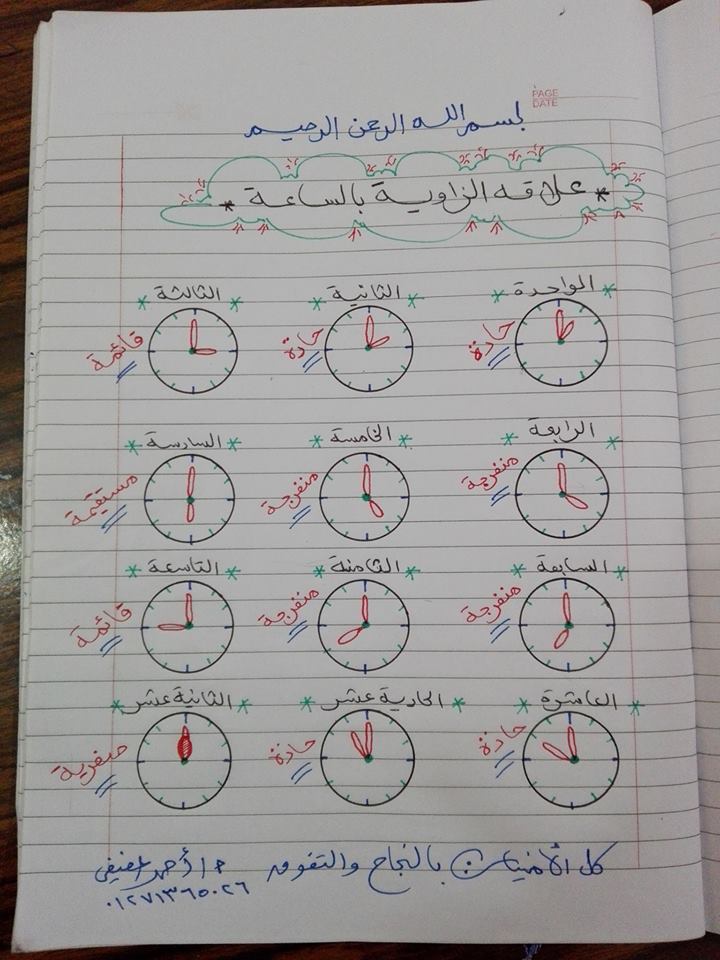 PAGE
DATE
بسم الله الرحمن الرحيم
* علاقه الزاوية بالساعة *
الواحدة * الثانية * الثالثة
حادة حادة قائمة
الرابعة * الخامسة * السادسة
منفرجة منفرجة مستقيمة
السابعة * الثامنة * التاسعة
منفرجة منفرجة قائمة
العاشرة * الحادية عشر * الثانية عشر
حادة حادة صفرية
كل الأمنيات بالنجاح والتفوق أ/أحمد عفيفي
٠١٢٧١٣٦٥٠٢٦